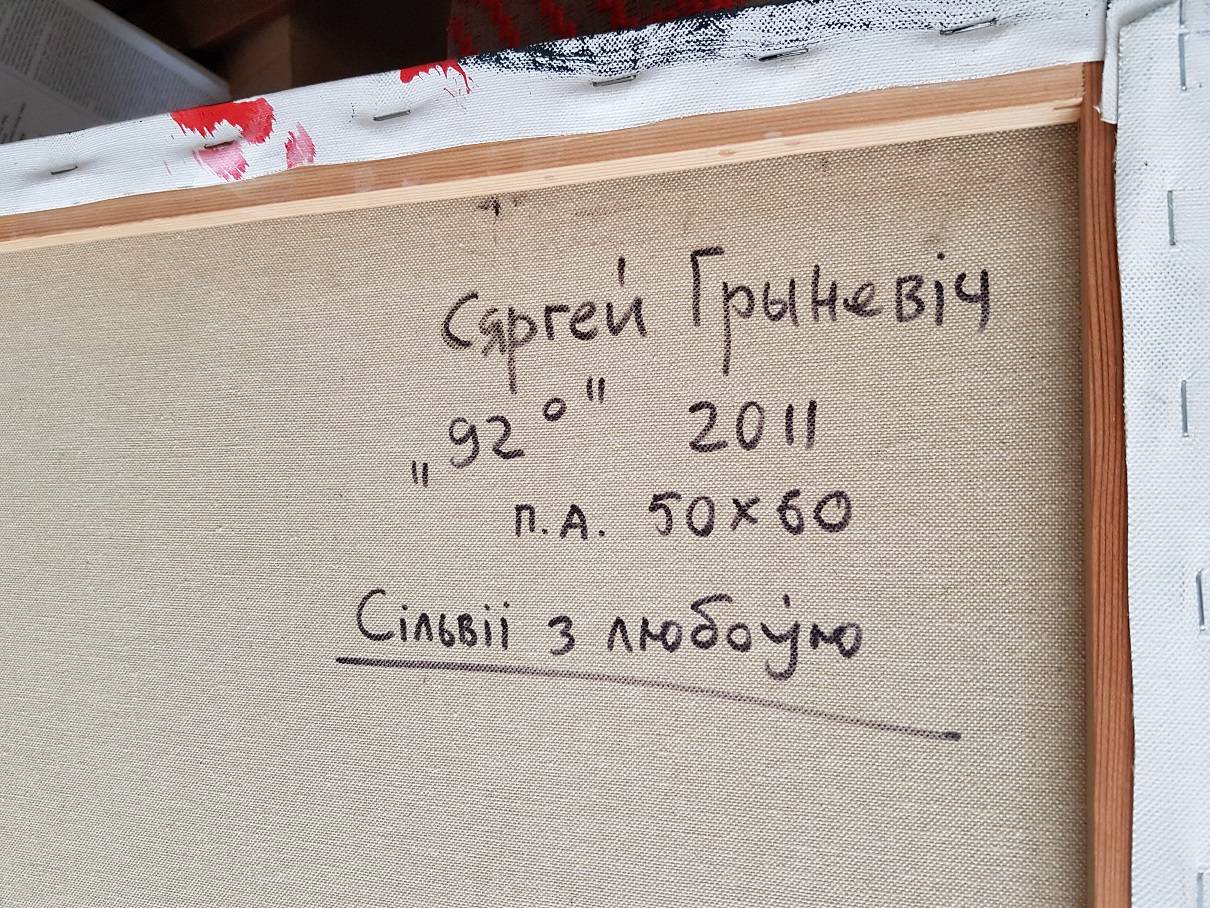 Сяргей Грыневіч
„92°" 2011
п.А. 50×60
Сільвіі з любоўю